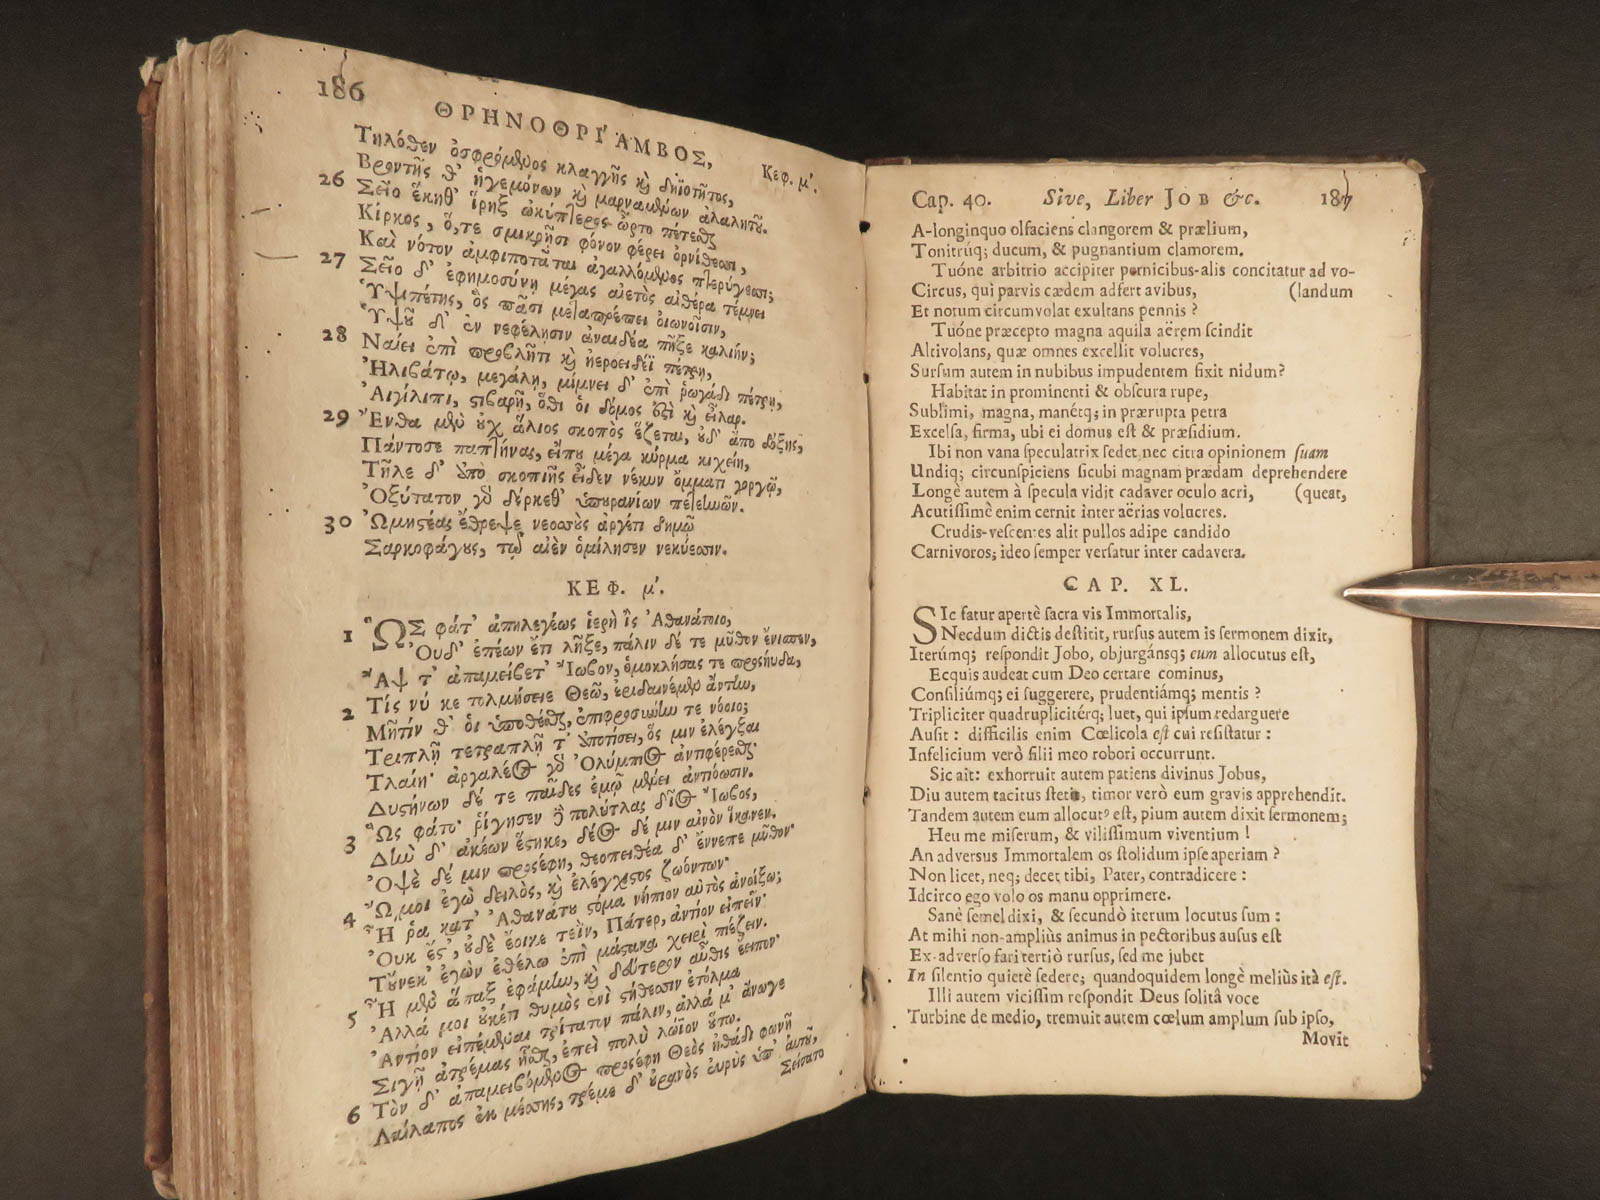 186
ΘΡΗΝΟΘΡΙ´ΑΜΒΟΣ,
Κεφ. μ´.
Τηλόθεν ὀσφρόμενος κλαγγῆς καὶ δηϊοτῆτος,
Βροντῆς θ᾽ ἡγεμόνων καὶ μαρναμένων ἀλαλητοῦ.
26 Σεῖο ἕκηθ᾽ ἵρηξ ὠκύπτερος ὦρτο πέτεσθαι
Κίρκος, ὅ,τε σμικρῇσι φόνον φέρει ὀρνίθεσσι,
Καὶ νότον ἀμφιποτᾶται ἀγαλλόμενος πτερύγεσσι;
27 Σεῖο δ᾽ ἐφημοσύνῃ μέγας αἰετὸς αἰθέρα τέμνει
Ὑψιπέτης, ὃς πᾶσι μεταπρέπει οἰωνοῖσιν,
Ὑψοῦ δ᾽ ἐν νεφέλῃσιν ἀναιδέα πῆξε καλιήν;
28 Ναίει ἐπὶ προβλῆτι καὶ ἠεροειδέϊ πέτρῃ,
Ἠλιβάτῳ, μεγάλῃ, μίμνει δ᾽ ἐπὶ ῥωγάδι πέτρῃ,
Αἰγίλιπι, στιβαρῇ, ὅθι οἱ δόμος ἐστὶ καὶ εἶλαρ.
29 Ἔνθα μὲν οὐχ ἅλιος σκοπὸς ἕζεται, οὐδ᾽ ἄπο δόξης,
Πάντοσε παπτήνας, εἴπου μέγα κύρμα κιχείη,
Τῆλε δ᾽ ἀπὸ σκοπιῆς εἶδεν νέκυν ὄμματι γοργῷ,
Ὀξύτατον γὰρ δέρκεθ᾽ ὑπουρανίων πετεηνῶν.
30 Ὠμηστέας ἔθρεψε νεοσσοὺς ἀργέτι δημῷ
Σαρκοφάγους, τῷ αἰὲν ὁμίλησεν νεκύεσσιν.
ΚΕΦ. μ´.
1 Ὣς φάτ᾽ ἀπηλεγέως ἱερὴ ἲς Ἀθανάτοιο,
Οὐδ᾽ ἐπέων ἔτι λῆξε, πάλιν δέ τε μῦθον ἔνισπεν,
Ἂψ τ᾽ ἀπαμείβετ᾽ Ἴωβον, ὁμοκλήσας τε προσηύδα,
2 Τίς νύ κε τολμήσειε Θεῷ, ἐριδαινέμεν ἄντην,
Μῆτίν θ᾽ οἱ ὑποθέσθαι, ἐπιφροσύνην τε νόοιο;
Τριπλῇ τετραπλῇ τ᾽ ἀποτίσει, ὅς μιν ἐλέγξαι
Τλαίη· ἀργαλέος γὰρ Ὀλύμπιος ἀντιφέρεσθαι·
Δυστήνων δέ τε παῖδες ἐμῷ μένει ἀντιόωσιν.
3 Ὣς φάτο· ῥίγησεν δὲ πολύτλας δῖος Ἴωβος,
Δὴν δ᾽ ἀκέων ἕστηκε, δέος δέ μιν αἰνὸν ἵκανεν.
Ὀψὲ δέ μιν προσέφη, θεοπειθέα δ᾽ ἔννεπε μῦθον·
4 Ὤμοι ἐγὼ δειλὸς, καὶ ἐλέγχιστος ζωόντων·
Ἦ ῥα κατ᾽ Ἀθανάτου στόμα νήπιον αὐτὸς ἀνοίξω;
Οὐκ ἔστ᾽, οὐδὲ ἔοικε τεῒν, Πάτερ, ἀντίον εἰπεῖν·
Τοὔνεκ᾽ ἐγὼν ἐθέλω ἐπὶ μάστακα χειρὶ πιέζειν.
5 Ἦ μὲν ἅπαξ ἐφάμην, καὶ δεύτερον αὖθις ἔειπον·
Ἀλλά μοι οὐκέτι θυμὸς ἐνὶ στήθεσσιν ἐτόλμα
Ἀντίον εἰπέμεναι τρίτατον πάλιν, ἀλλά μ᾽ ἄνωγε
Σιγῇ ἀτρέμας ἧσθαι, ἐπεὶ πολὺ λώϊον οὕτω.
6 Τὸν δ᾽ ἀπαμειβόμενος προσέφη Θεὸς ἠθάδι φωνῇ
Λαίλαπος ἐκ μέσσης, τρέμε δ᾽ οὐρανὸς εὐρὺς ὑπ᾽ αὐτοῦ,
Σείσατο
Cap. 40. Sive, Liber JOB &c. 187
A-longinquo olfaciens clangorem & prælium,
Tonitrúq; ducum, & pugnantium clamorem.
Tuóne arbitrio accipiter pernicibus-alis concitatur ad vo-
Circus, qui parvis cædem adfert avibus, (landum
Et notum circumvolat exultans pennis ?
Tuóne præcepto magna aquila aërem ſcindit
Altivolans, quæ omnes excellit volucres,
Surſum autem in nubibus impudentem fixit nidum?
Habitat in prominenti & obſcura rupe,
Sublimi, magna, manétq; in prærupta petra
Excelſa, firma, ubi ei domus eſt & præſidium.
Ibi non vana ſpeculatrix ſedet nec citra opinionem ſuam
Undiq; circunſpiciens ſicubi magnam prædam deprehendere
Longè autem à ſpecula vidit cadaver oculo acri, (queat,
Acutiſſimè enim cernit inter aërias volucres.
Crudis-veſcentes alit pullos adipe candido
Carnivoros; ideo ſemper verſatur inter cadavera.
CAP. XL.
SIc fatur apertè ſacra vis Immortalis,
Necdum dictis deſtitit, rurſus autem is ſermonem dixit,
Iterúmq; reſpondit Jobo, objurgánsq; eum allocutus eſt,
Ecquis audeat cum Deo certare cominus,
Conſiliúmq; ei ſuggerere, prudentiámq; mentis ?
Tripliciter quadruplicitérq; luet, qui ipſum redarguere
Auſit : difficilis enim Cœlicola eſt cui reſiſtatur :
Infelicium verò filii meo robori occurrunt.
Sic ait: exhorruit autem patiens divinus Jobus,
Diu autem tacitus ſtetit, timor verò eum gravis apprehendit.
Tandem autem eum allocutꝰ eſt, pium autem dixit ſermonem;
Heu me miſerum, & viliſſimum viventium !
An adversus Immortalem os ſtolidum ipſe aperiam ?
Non licet, neq; decet tibi, Pater, contradicere :
Idcirco ego volo os manu opprimere.
Sanè ſemel dixi, & ſecundò iterum locutus ſum :
At mihi non-ampliùs animus in pectoribus auſus eſt
Ex-adverſo fari tertiò rurſus, ſed me jubet
In ſilentio quietè ſedere; quandoquidem longè meliùs ità eſt.
Illi autem viciſſim reſpondit Deus ſolitâ voce
Turbine de medio, tremuit autem cœlum amplum ſub ipſo,
Movit